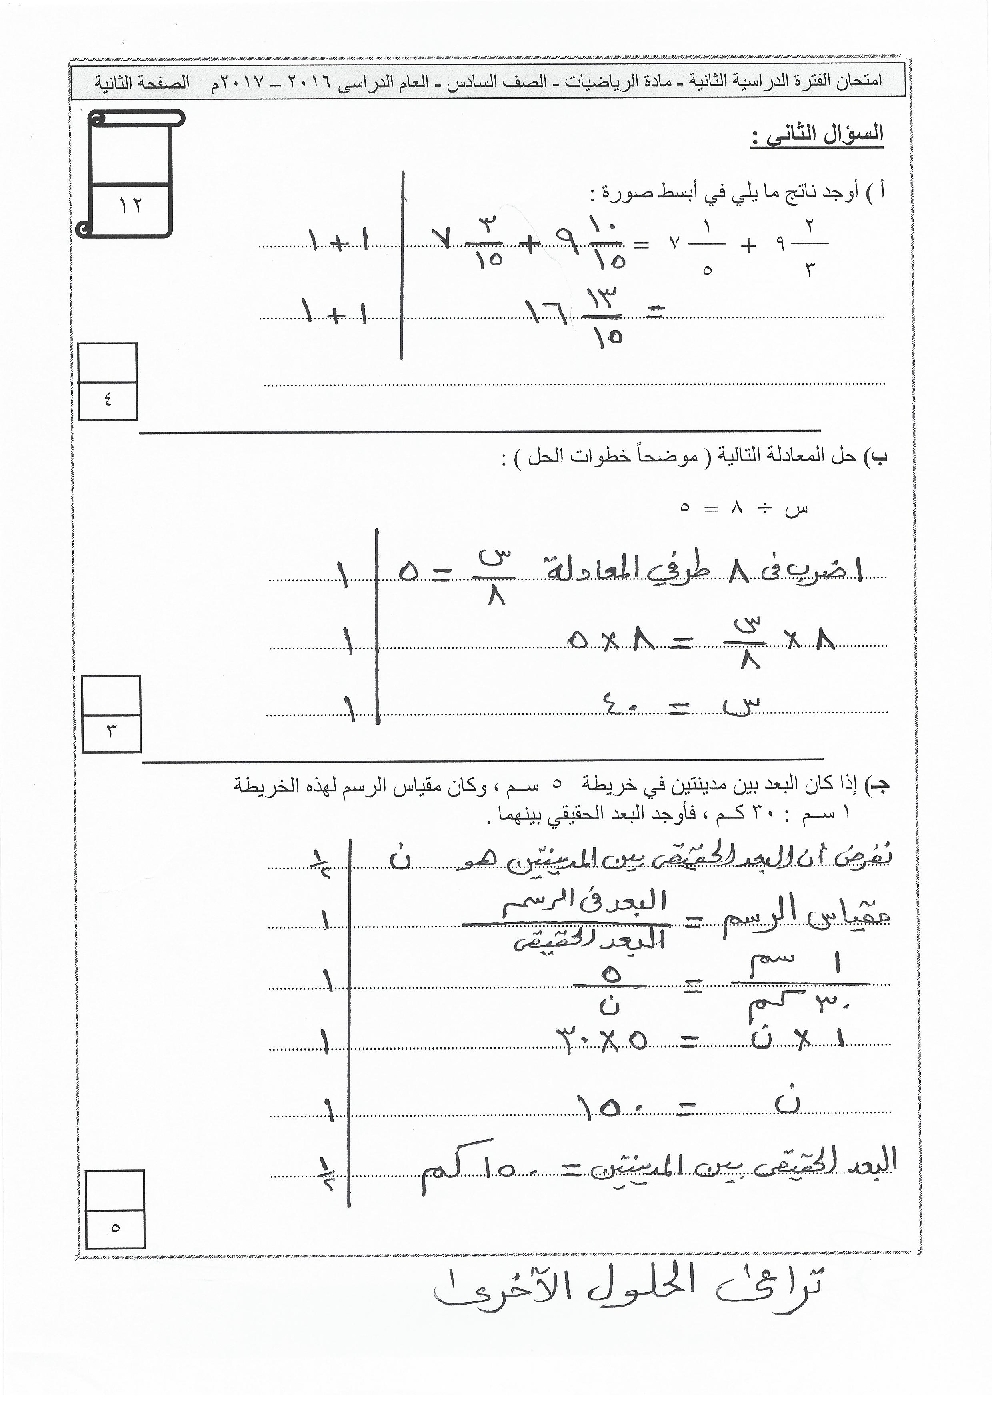 امتحان الفترة الدراسية الثانية - مادة الرياضيات - الصف السادس - العام الدراسي ٢٠١٦ - ٢٠١٧م الصفحة الثانية
السؤال الثاني :
١٢
أ ) أوجد ناتج ما يلي في أبسط صورة :
٩ ٢/٣ + ٧ ١/٥ = ٩ ١٠/١٥ + ٧ ٣/١٥ ١ + ١
= ١٦ ١٣/١٥ ١ + ١
٤
ب) حل المعادلة التالية ( موضحاً خطوات الحل ) :
س ÷ ٨ = ٥
اضرب في ٨ طرفي المعادلة س/٨ = ٥ ١
٨ × س/٨ = ٨ × ٥ ١
س = ٤٠ ١
٣
جـ) إذا كان البعد بين مدينتين في خريطة ٥ سم ، وكان مقياس الرسم لهذه الخريطة
١ سم : ٣٠ كم ، فأوجد البعد الحقيقي بينهما .
نفرض أن البعد الحقيقي بين المدينتين هو ن ١/٢
مقياس الرسم = البعد في الرسم/البعد الحقيقي ١
١ سم/٣٠ كم = ٥/ن ١
١ × ن = ٥ × ٣٠ ١
ن = ١٥٠ ١
البعد الحقيقي بين المدينتين = ١٥٠ كم ١/٢
٥
تراعى الحلول الآخرى